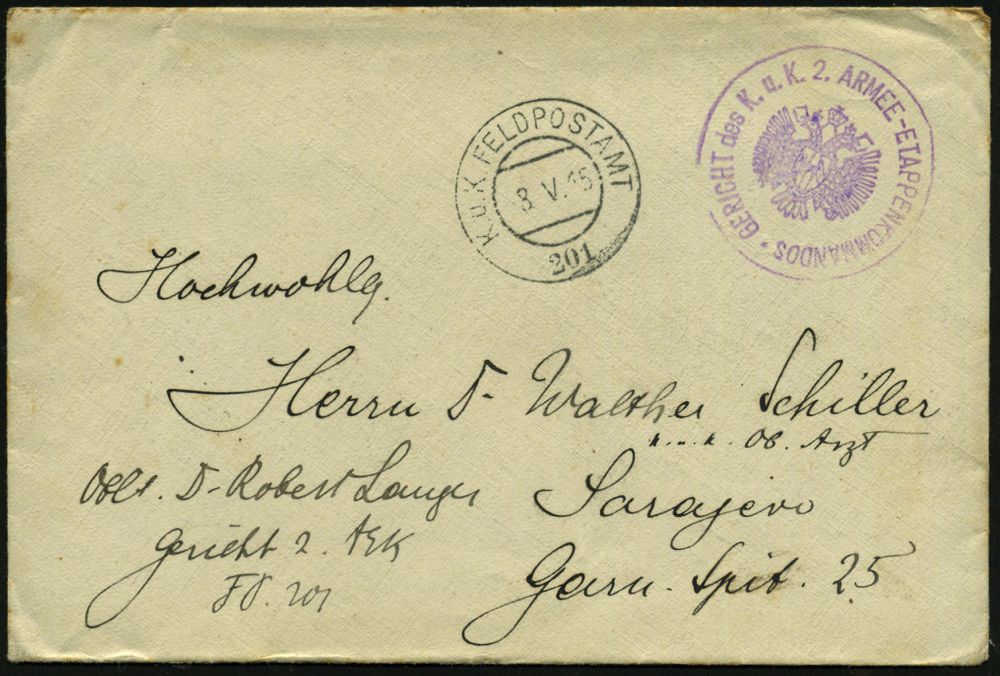 GERICHT des K. u. K. 2. ARMEE-ETAPPENKOMMANDOS *
K.u.K. FELDPOSTAMT
8. V. 15
201
Hochwohlg.
Herrn D- Walther Schiller
k. u. k. Ob. Arzt
Sarajevo
Garn. Spit. 25
Oblt. D- Robert Langer
Gericht 2. AEK
FP. 201